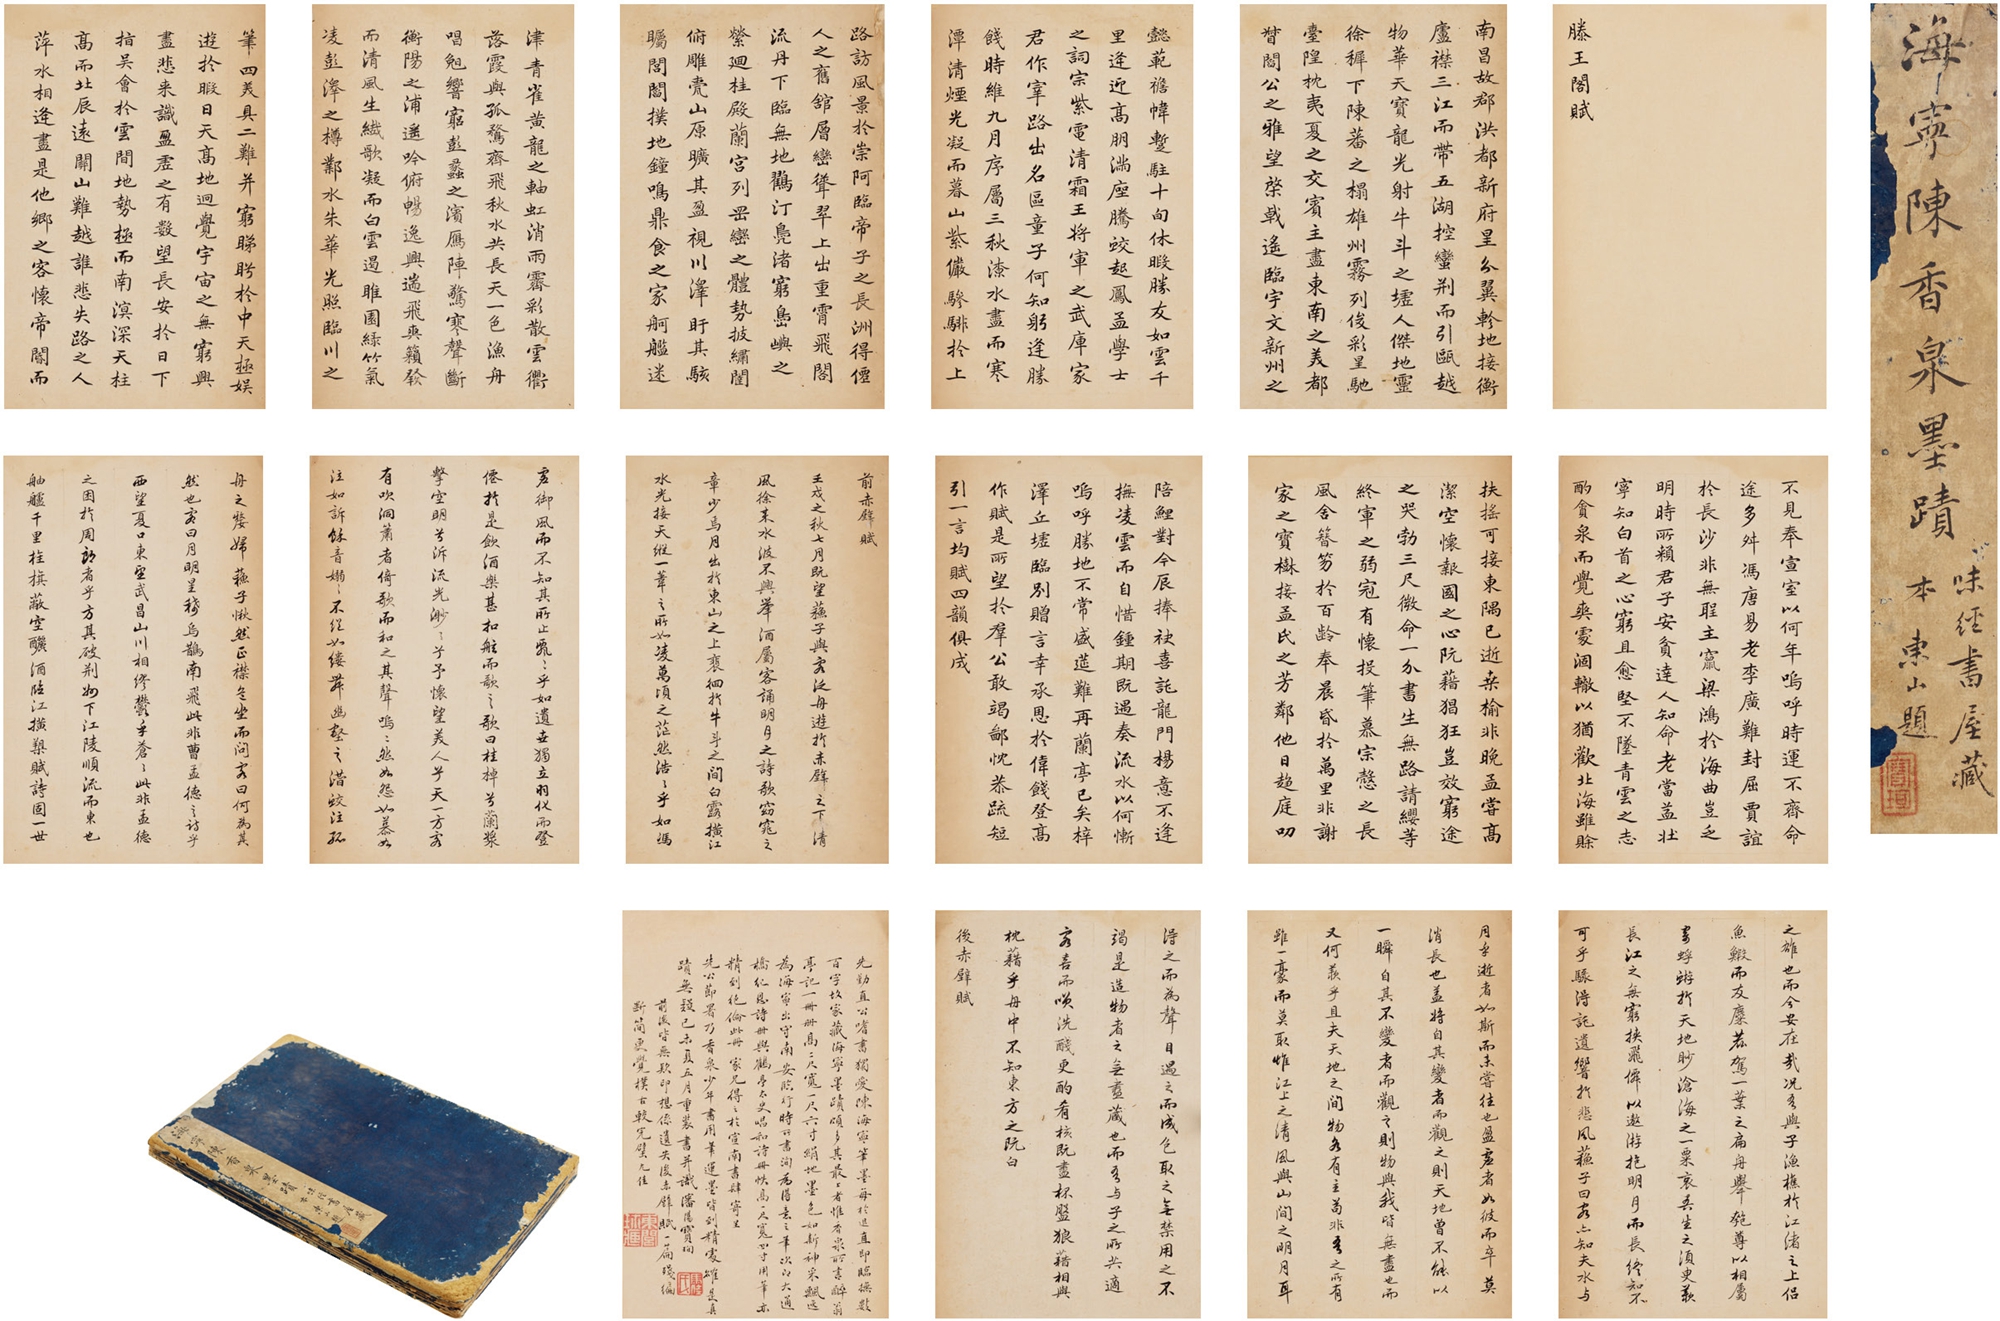 海寧陳香泉墨蹟
味經書屋藏
本 東山題
滕王閣賦
南昌故郡洪都新府星分翼軫地接衡
廬襟三江而帶五湖控蠻荊而引甌越
物華天寶龍光射牛斗之墟人傑地靈
徐穉下陳蕃之榻雄州霧列俊彩星馳
臺隍枕夷夏之交賓主盡東南之美都
督閻公之雅望棨戟遙臨宇文新州之
懿範襜帷暫駐十旬休暇勝友如雲千
里逢迎高朋滿座騰蛟起鳳孟學士
之詞宗紫電清霜王將軍之武庫家
君作宰路出名區童子何知躬逢勝
餞時維九月序屬三秋潦水盡而寒
潭清煙光凝而暮山紫儼驂騑於上
路訪風景於崇阿臨帝子之長洲得僊
人之舊館層巒聳翠上出重霄飛閣
流丹下臨無地鸖汀鳧渚窮島嶼之
縈迴桂殿蘭宮列岡巒之體勢披繡闥
俯雕甍山原曠其盈視川澤盱其駭
矚閭閻撲地鐘鳴鼎食之家舸艦迷
津青雀黃龍之軸虹消雨霽彩散雲衢
落霞與孤騖齊飛秋水共長天一色漁舟
唱晚響窮彭蠡之濱鴈陣驚寒聲斷
衡陽之浦遙吟俯暢逸興遄飛爽籟發
而清風生纖歌凝而白雲遏睢園綠竹氣
凌彭澤之樽鄴水朱華光照臨川之
筆四美具二難并窮睇眄於中天極娛
遊於暇日天高地迥覺宇宙之無窮興
盡悲來識盈虛之有數望長安於日下
指吳會於雲間地勢極而南溟深天柱
高而北辰遠關山難越誰悲失路之人
萍水相逢盡是他鄉之客懷帝閽而
不見奉宣室以何年嗚呼時運不齊命
途多舛馮唐易老李廣難封屈賈誼
於長沙非無聖主竄梁鴻於海曲豈乏
明時所賴君子安貧達人知命老當益壯
寧知白首之心窮且愈堅不墜青雲之志
酌貪泉而覺爽處涸轍以猶歡北海雖賒
扶搖可接東隅已逝桑榆非晚孟嘗高
潔空懷報國之心阮藉猖狂豈效窮途
之哭勃三尺微命一介書生無路請纓等
終軍之弱冠有懷投筆慕宗愨之長
風舍簪笏於百齡奉晨昏於萬里非謝
家之寶樹接孟氏之芳鄰他日趨庭叨
陪鯉對今辰捧袂喜託龍門楊意不逢
撫凌雲而自惜鍾期既遇奏流水以何慚
嗚呼勝地不常盛筵難再蘭亭已矣梓
澤丘墟臨別贈言幸承恩於偉餞登高
作賦是所望於羣公敢竭鄙忱恭疏短
引一言均賦四韻俱成
前赤壁賦
壬戌之秋七月既望蘇子與客泛舟遊於赤壁之下清
風徐來水波不興舉酒屬客誦明月之詩歌窈窕之
章少焉月出於東山之上裵徊於牛斗之間白露橫江
水光接天縱一葦之所如凌萬頃之茫然浩浩乎如馮
虛御風而不知其所止飄飄乎如遺世獨立羽化而登
僊於是飲酒樂甚扣舷而歌之歌曰桂棹兮蘭槳
擊空明兮泝流光渺渺兮予懷望美人兮天一方客
有吹洞簫者倚歌而和之其聲嗚嗚然如怨如慕如
泣如訴餘音嫋嫋不絕如縷舞幽壑之潛蛟泣孤
舟之嫠婦蘇子愀然正襟危坐而問客曰何為其
然也客曰月明星稀烏鵲南飛此非曹孟德之詩乎
西望夏口東望武昌山川相繆鬱乎蒼蒼此非孟德
之困於周郎者乎方其破荊州下江陵順流而東也
舳艫千里旌旗蔽空釃酒臨江橫槊賦詩固一世
之雄也而今安在哉況吾與子漁樵於江渚之上侶
魚鰕而友麋鹿駕一葉之扁舟舉匏尊以相屬
寄蜉蝣於天地眇滄海之一粟哀吾生之須臾羨
長江之無窮挾飛僊以遨游抱明月而長終知不
可乎驟得託遺響於悲風蘇子曰客亦知夫水與
月乎逝者如斯而未嘗往也盈虛者如彼而卒莫
消長也蓋將自其變者而觀之則天地曾不能以
一瞬自其不變者而觀之則物與我皆無盡也而
又何羨乎且夫天地之間物各有主苟非吾之所有
雖一豪而莫取惟江上之清風與山間之明月耳
得之而為聲目遇之而成色取之無禁用之不
竭是造物者之無盡藏也而吾與子之所共適
客喜而笑洗醆更酌肴核既盡杯盤狼藉相與
枕藉乎舟中不知東方之既白
後赤壁賦
先勤直公嗜書獨愛陳海寧筆墨每於退直即臨撫數
百字故家藏海寧墨蹟頗多其最上者惟香泉所書醉翁
亭記一冊冊高二尺寬一尺六寸絹地墨色如新神采飄逸
為海寧出守南安臨行時所書洵為得意之筆次即大通
橋紀恩詩冊與鶴亭太史唱和詩冊帙高一尺寬四寸用筆亦
精到絕倫此冊 家兄得之於宣南書肆寄呈
先公節署乃香泉少年書用筆運墨皆到精處確是真
蹟無疑己未夏五月重裝書并識瀋陽寶垣
前後皆無欵印想係遺失後赤壁賦一篇殘編
斷簡更覺樸古較完璧尤佳